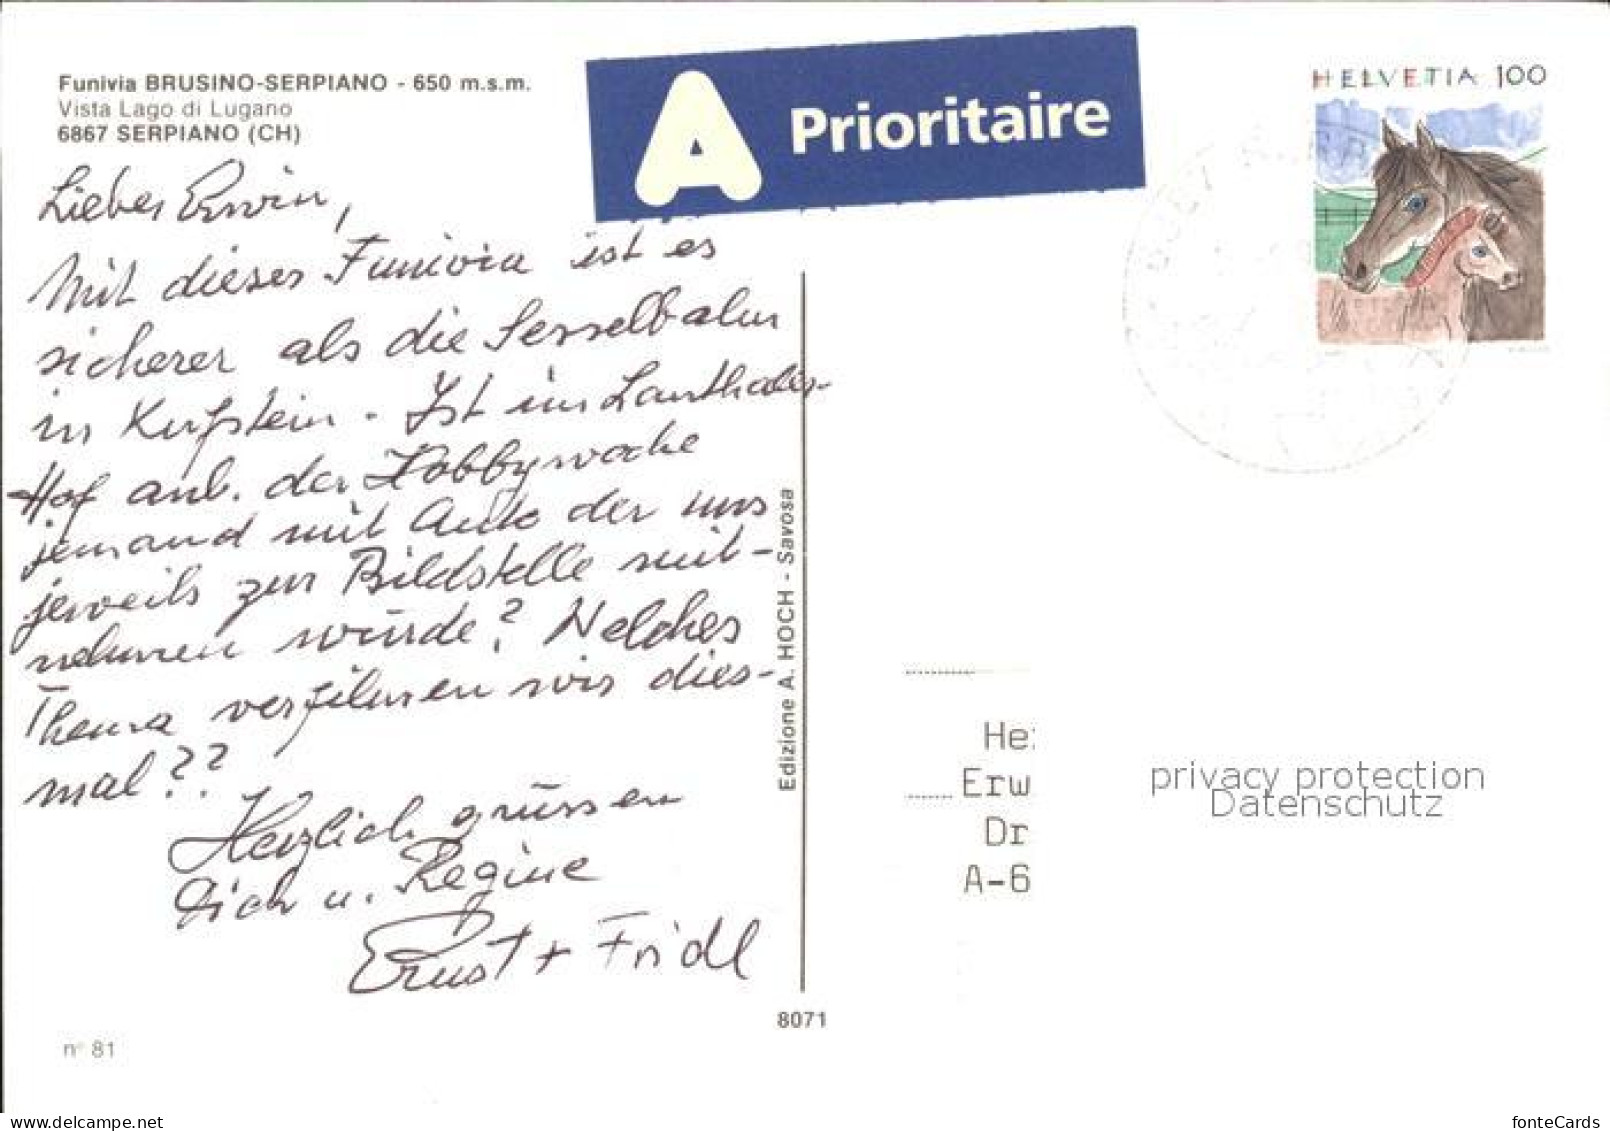 Funivia BRUSINO-SERPIANO - 650 m.s.m.
Vista Lago di Lugano
6867 SERPIANO (CH)
A Prioritaire
HELVETIA 100
Lieber Erwin,
Mit dieser Funivia ist es
sicherer als die Sesselbahn
in Kufstein. Ist im Lanthaler-
Hof anl. der Hobbywoche
jemand mit Auto der uns
jeweils zur Bildstelle mit-
nehmen würde? Welches
Thema verfilmen wir dies-
mal??
Herzlich grüssen
Dich u. Regine
Ernst + Fridl
Edizione A. HOCH - Savosa
8071
n° 81
He
Erw
Dr
A-6
privacy protection
Datenschutz
delcampe.net
fonteCards